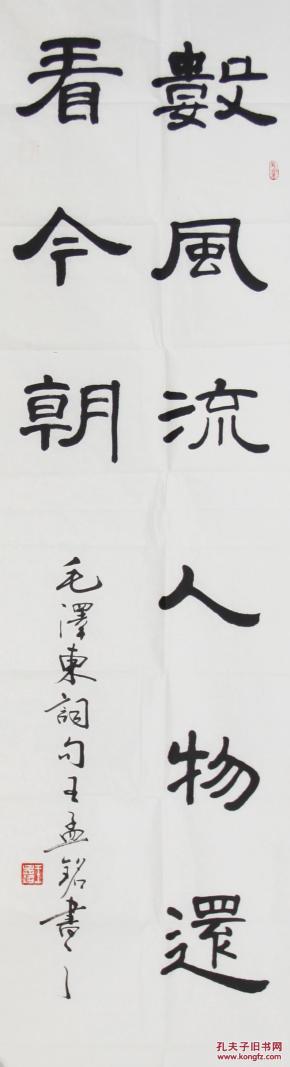 數風流人物還
看今朝
毛澤東詞句王孟銘書之
孔夫子旧书网